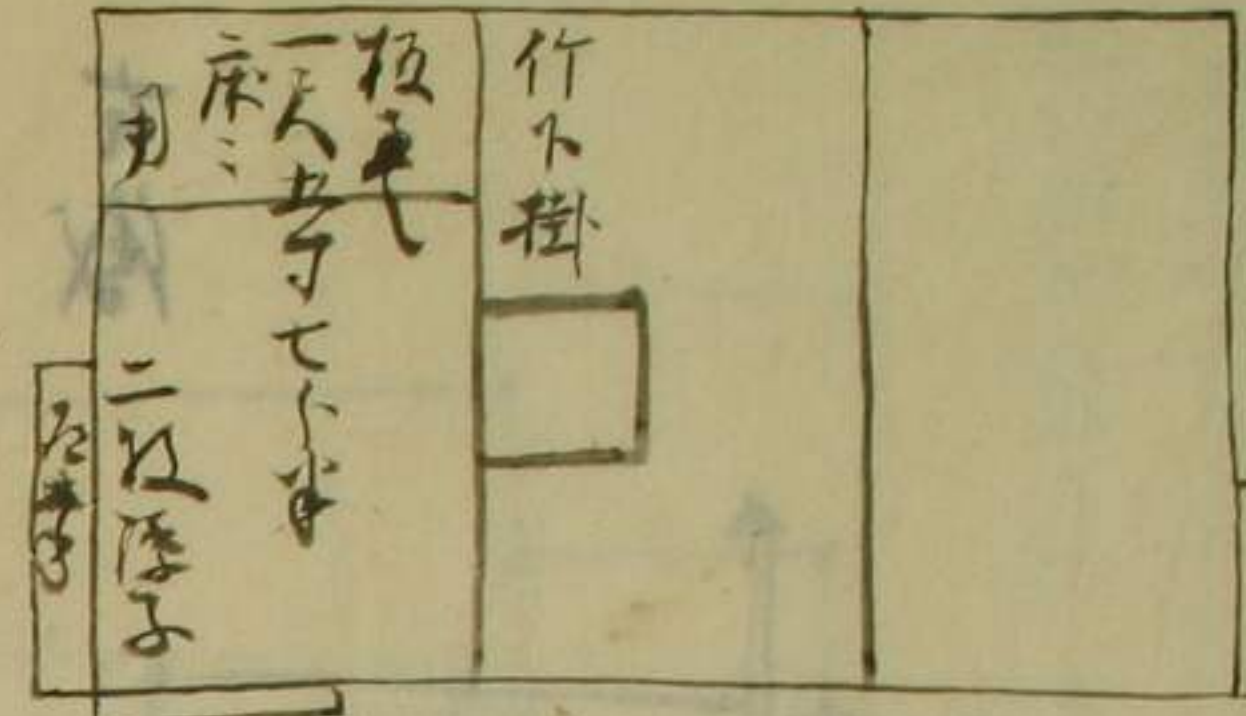 竹下掛
板畳
一尺五寸七分半
床ニ
用
二枚障子